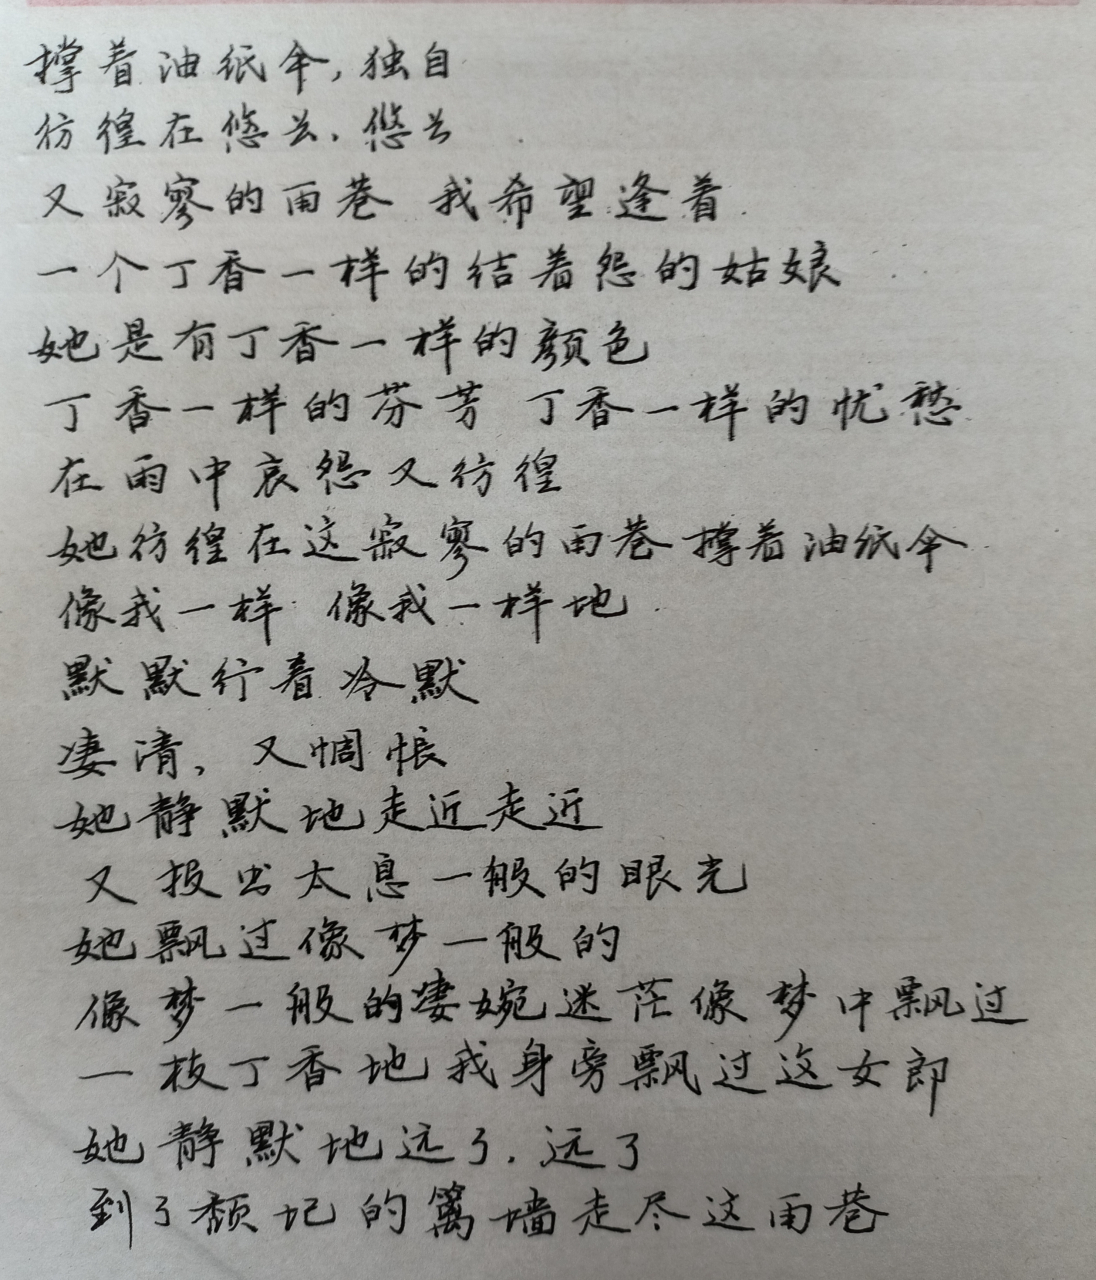 撑着油纸伞，独自
彷徨在悠长，悠长
又寂寥的雨巷 我希望逢着
一个丁香一样的结着怨的姑娘
她是有丁香一样的颜色
丁香一样的芬芳 丁香一样的忧愁
在雨中哀怨又彷徨
她彷徨在这寂寥的雨巷 撑着油纸伞
像我一样 像我一样地
默默行着冷默
凄清，又惆怅
她静默地走近走近
又投出太息一般的眼光
她飘过像梦一般的
像梦一般的凄婉迷茫像梦中飘过
一枝丁香地我身旁飘过这女郎
她静默地远了，远了
到了颓圮的篱墙走尽这雨巷